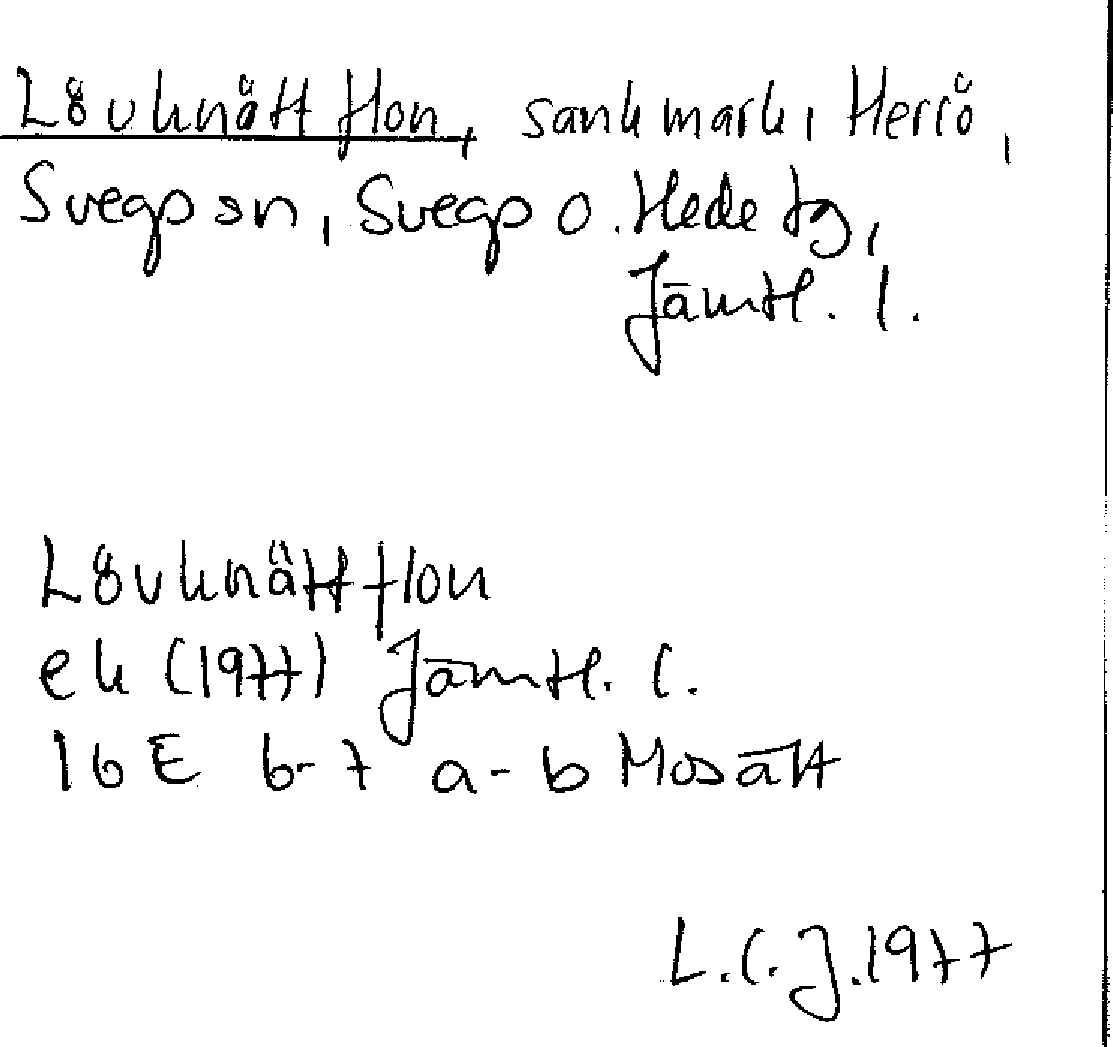 Lövknättflon, sankmark, Herrö,
Svegs sn, Svegs o. Hede tg,
Jämtl. l.
Lövknättflon
ek (1977) Jämtl. l.
16 E 6-7 a-b Mosätt
L.C.J. 1977